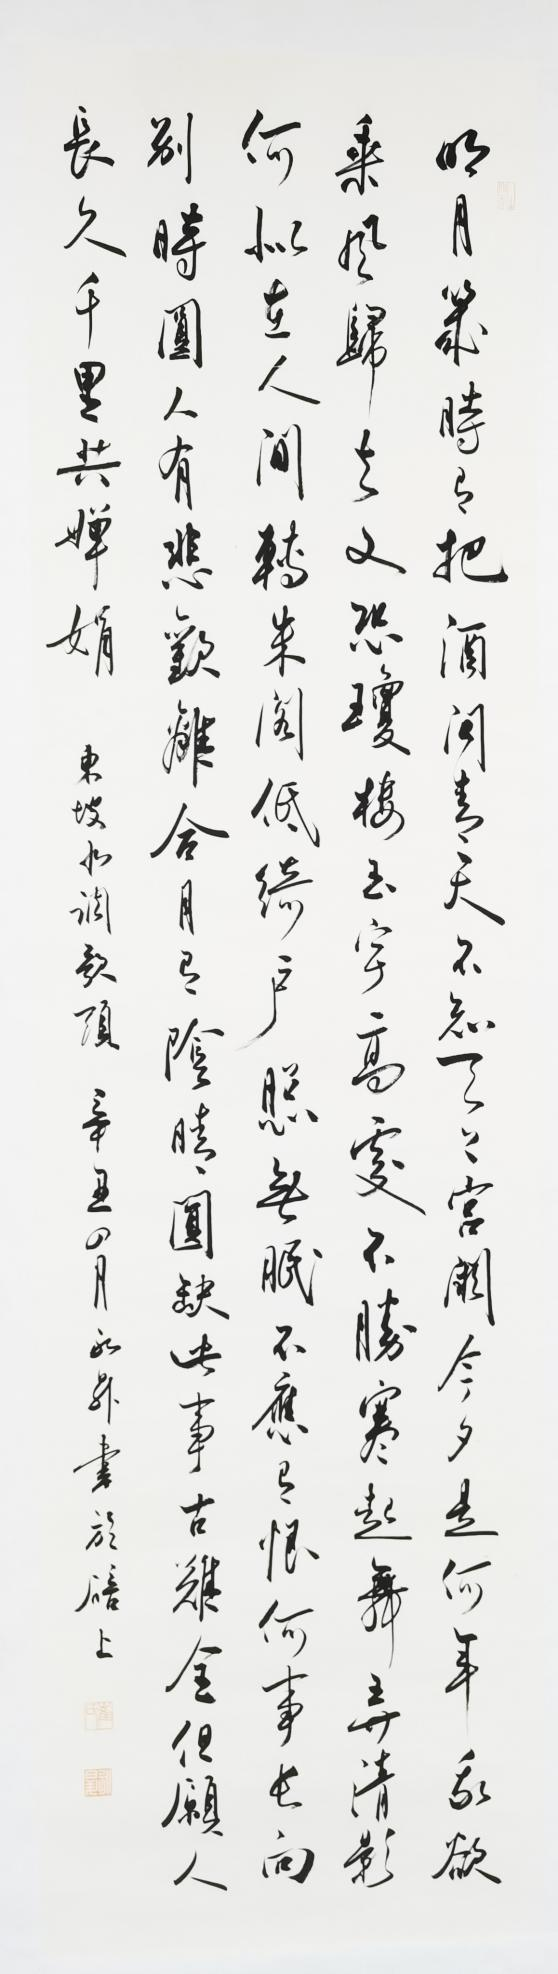 明月幾時有把酒問青天不知天上宮闕今夕是何年我欲
乘風歸去又恐瓊樓玉宇高處不勝寒起舞弄清影
何似在人間轉朱閣低綺戶照無眠不應有恨何事長向
別時圓人有悲歡離合月有陰晴圓缺此事古難全但願人
長久千里共嬋娟
東坡水調歌頭 辛丑四月永昇書於碚上